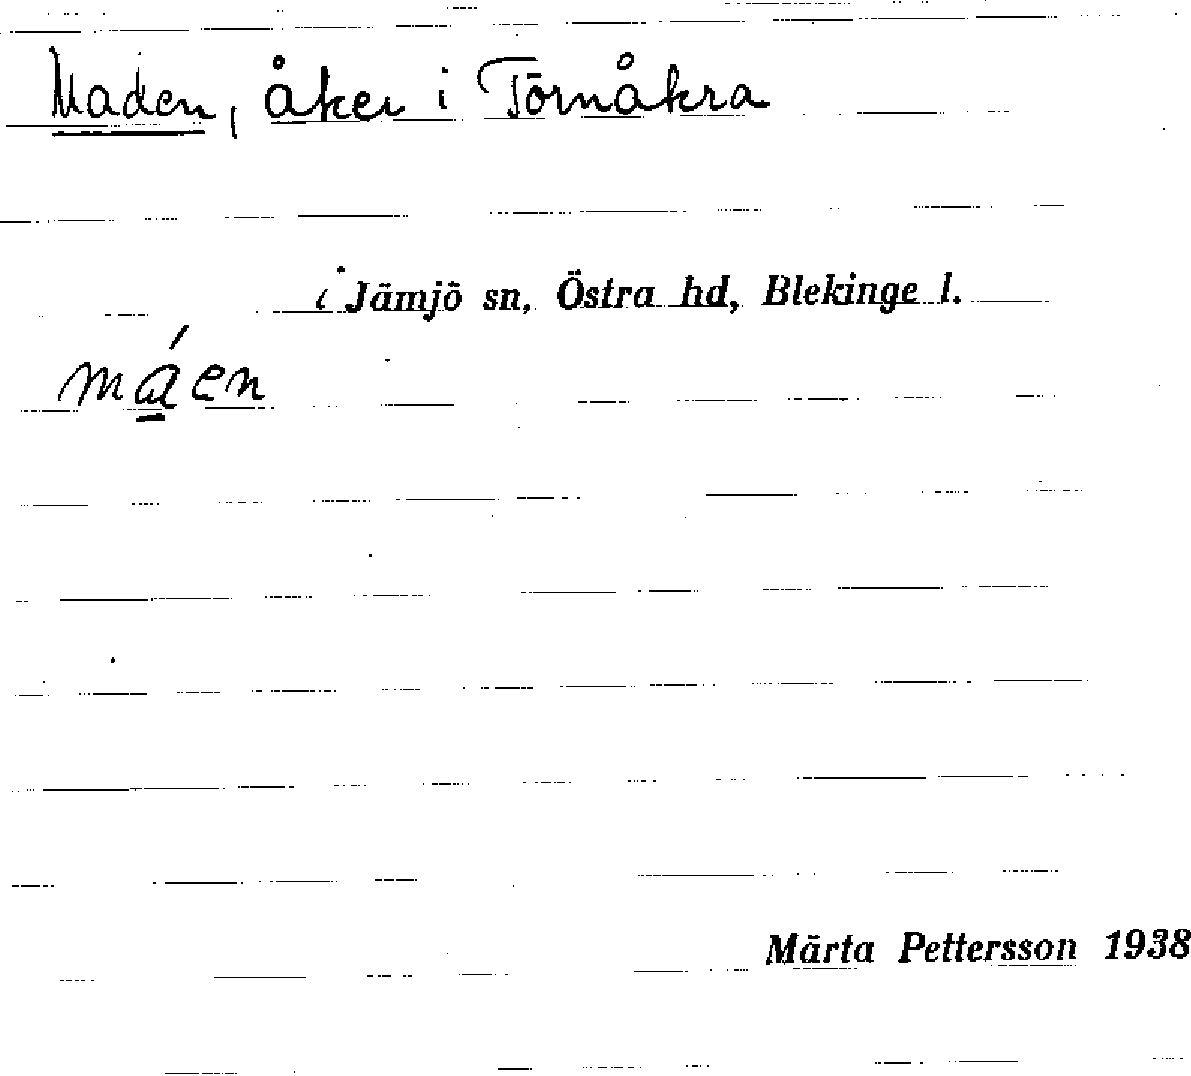 Maden, åker i Törnåkra
i Jämjö sn, Östra hd, Blekinge l.
máen
Märta Pettersson 1938